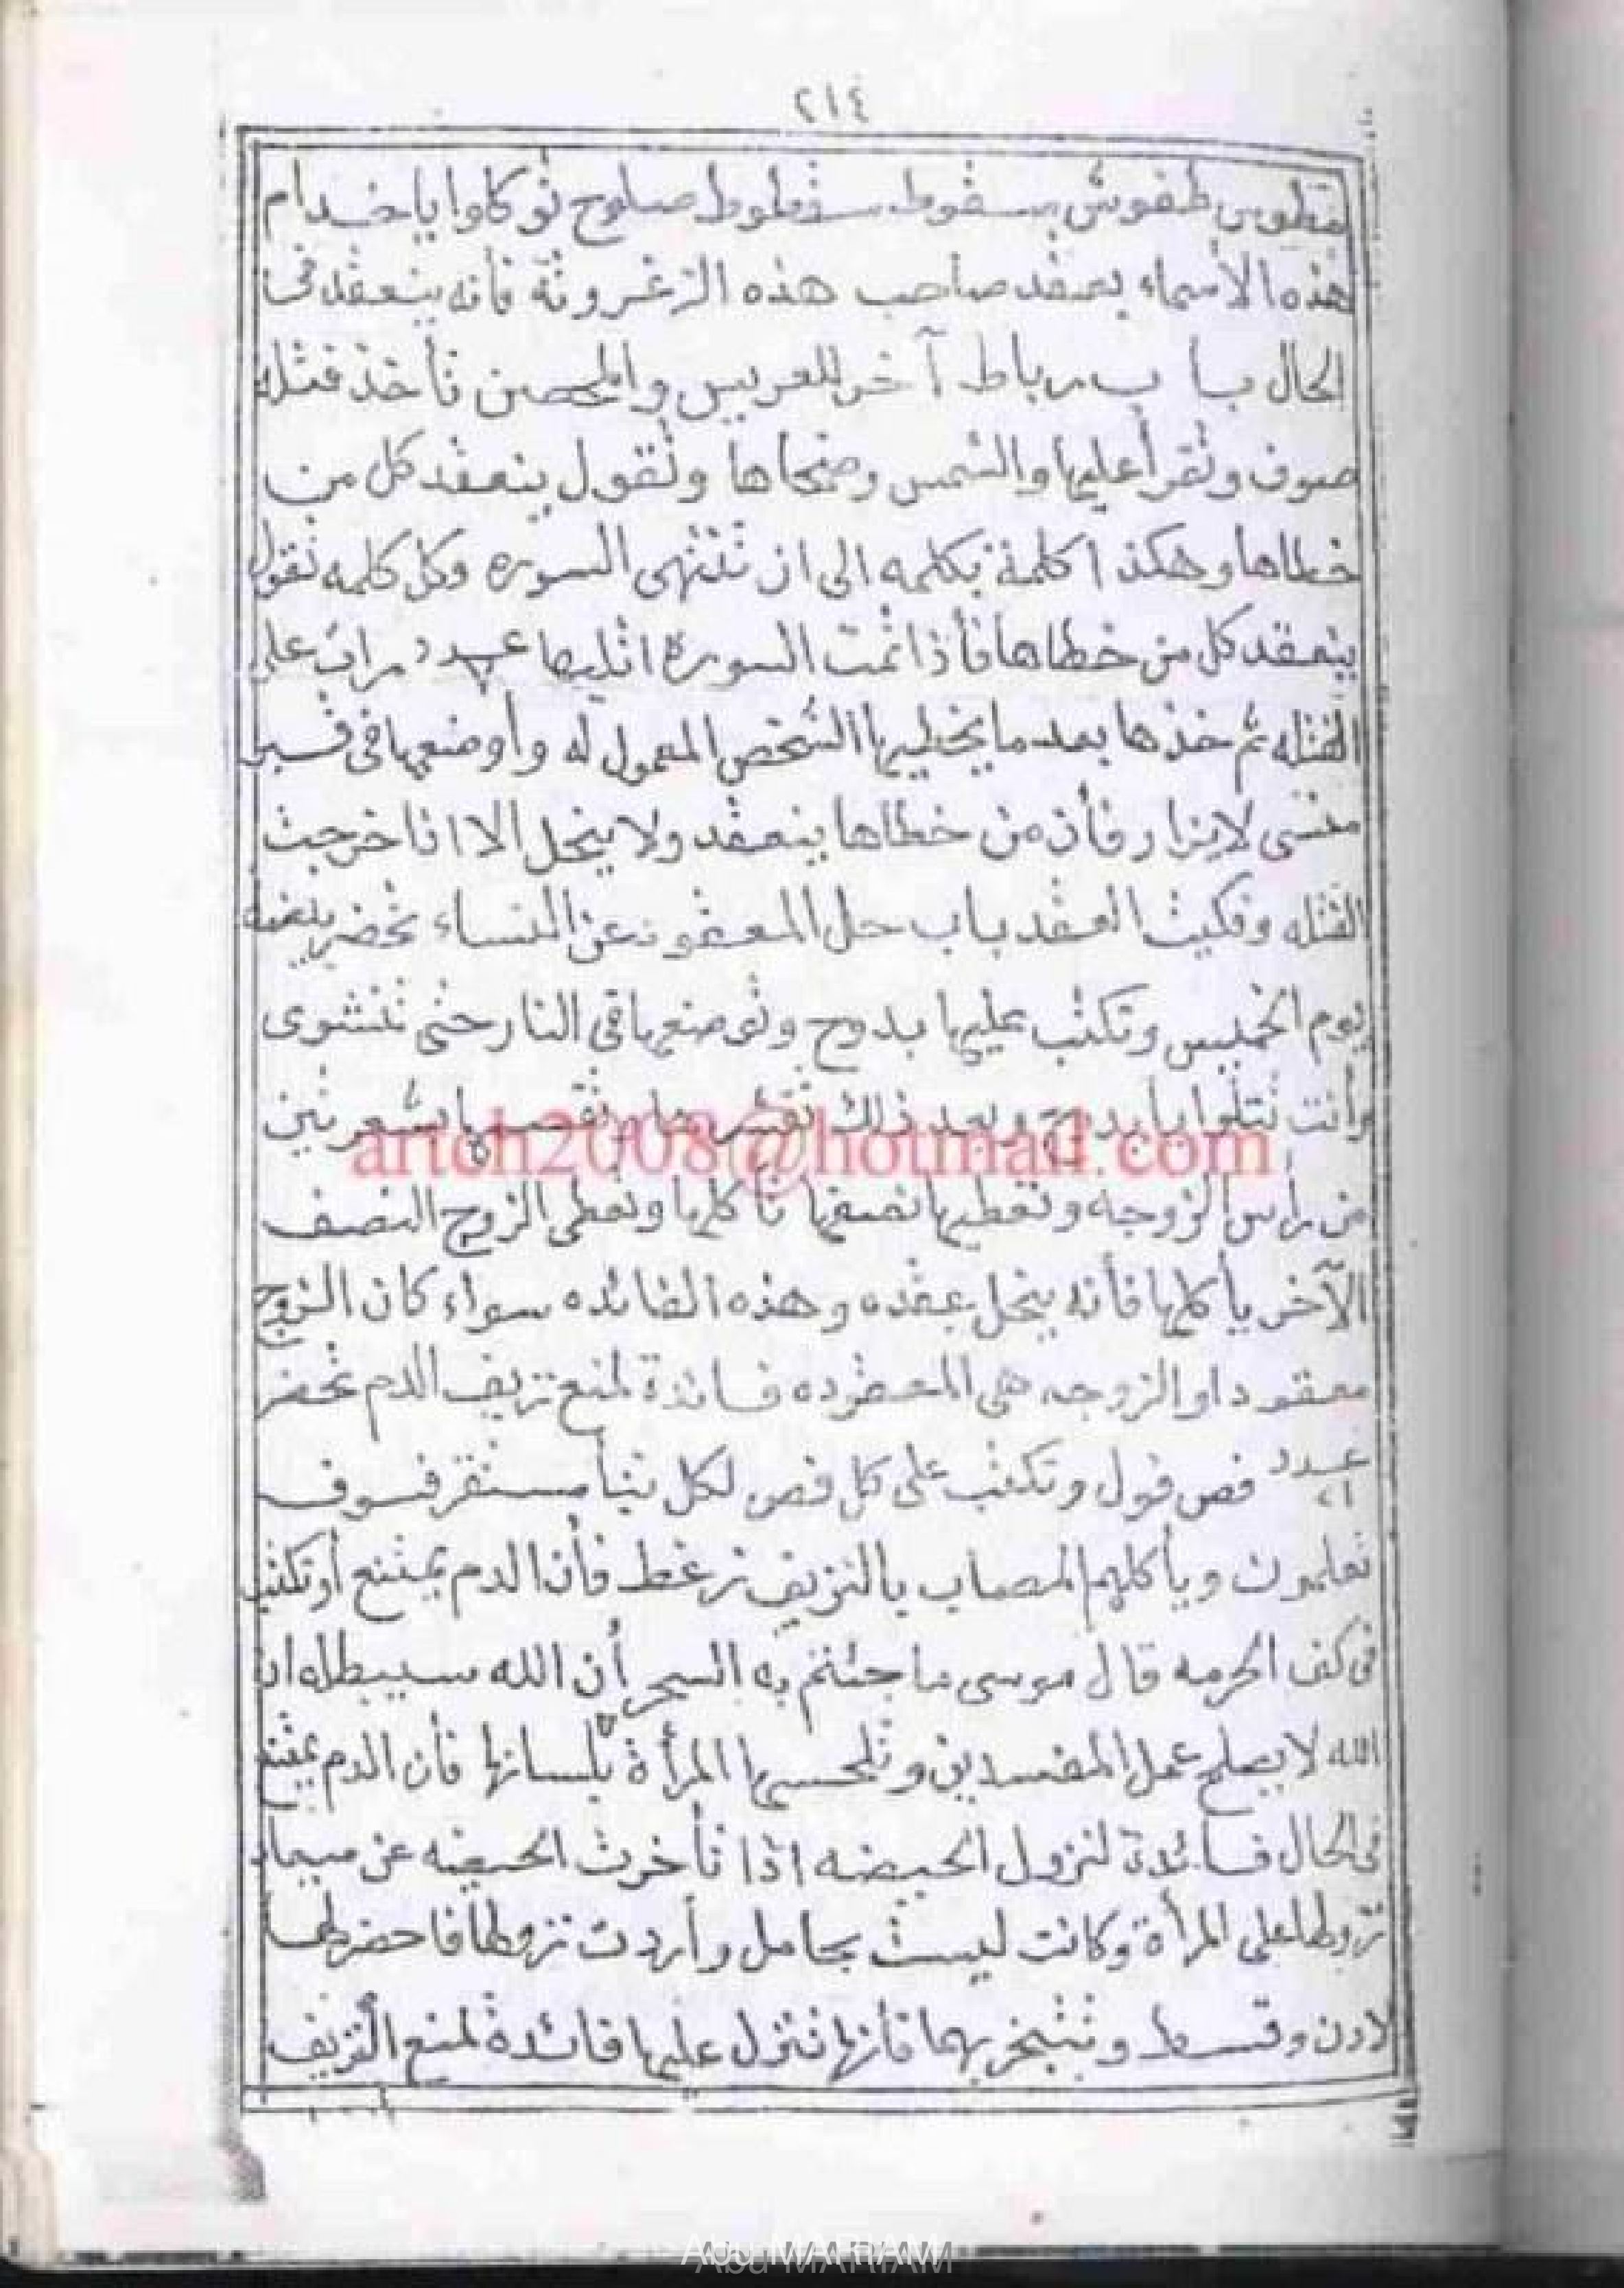 ٢١٤
لقطوس طفوش سقوط سقطوط صلوح توكلوا ياخدام
هذه الاسماء بعقد صاحب هذه الزغرونة فأنه ينعقد فى
الحال باب رباط آخر للعريس والمحصن تأخذ فتله
صوف وتقرأ عليها والشمس وضحاها وتقول ينعقد كل من
خطاها وهكذا كلمة بكلمه الى ان تنتهى السوره وكل كلمه تقول
ينعقد كل من خطاها فأذا تمت السورة اتليها عدد مرات على
الفتله ثم خذها بعد ما يخطيها الشخص المعمول له وأوضعها فى قبر
منسى لايزار فأن من خطاها ينعقد ولا ينحل الا اذا خرجت
الفتله وفكيت العقد باب حل المعقود عن النساء تحضر بيضة
يوم الخميس وتكتب عليها بدوح وتوضعها فى النار حتى تتشوى
وأنت تتلوا يا بدوح وبعد ذلك تقشرها وتقصها بشعرتين
من رأس الزوجه وتعطيها نصفها تأكلها وتعطى الزوج النصف
الآخر يأكلها فأنه ينحل عقده وهذه الفائده سواء كان الزوج
معقود او الزوجه هى المعقوده فائدة لمنع نزيف الدم تحضر
عدد ٢١ فص فول وتكتب على كل فص لكل نبأ مستقر فسوف
تعلمون ويأكلهم المصاب بالنزيف زغط فأن الدم يمتنع أو تكتب
فى كف الحرمه قال موسى ما جئتم به السحر أن الله سيبطله ان
الله لا يصلح عمل المفسدين وتلحسها المرأة بلسانها فأن الدم يمتنع
فى الحال فائدة لنزول الحيضه اذا تأخرت الحيضه عن ميعاد
نزولها على المرأة وكانت ليست بحامل وأردت نزولها فاحضر لها
لادن وقسط وتتبخر بهما فأنها تنزل عليها فائدة لمنع النزيف
artch2008@hotmail.com
Abu MARIAM